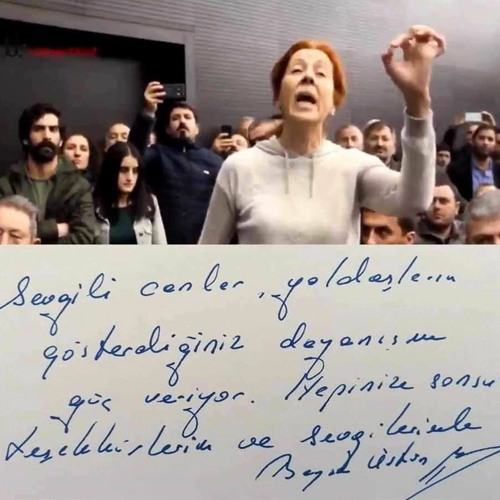 Sevgili canlar, yoldaşlarım
gösterdiğiniz dayanışma
güç veriyor. Hepinize sonsu
teşekkürlerim ve sevgilerimle